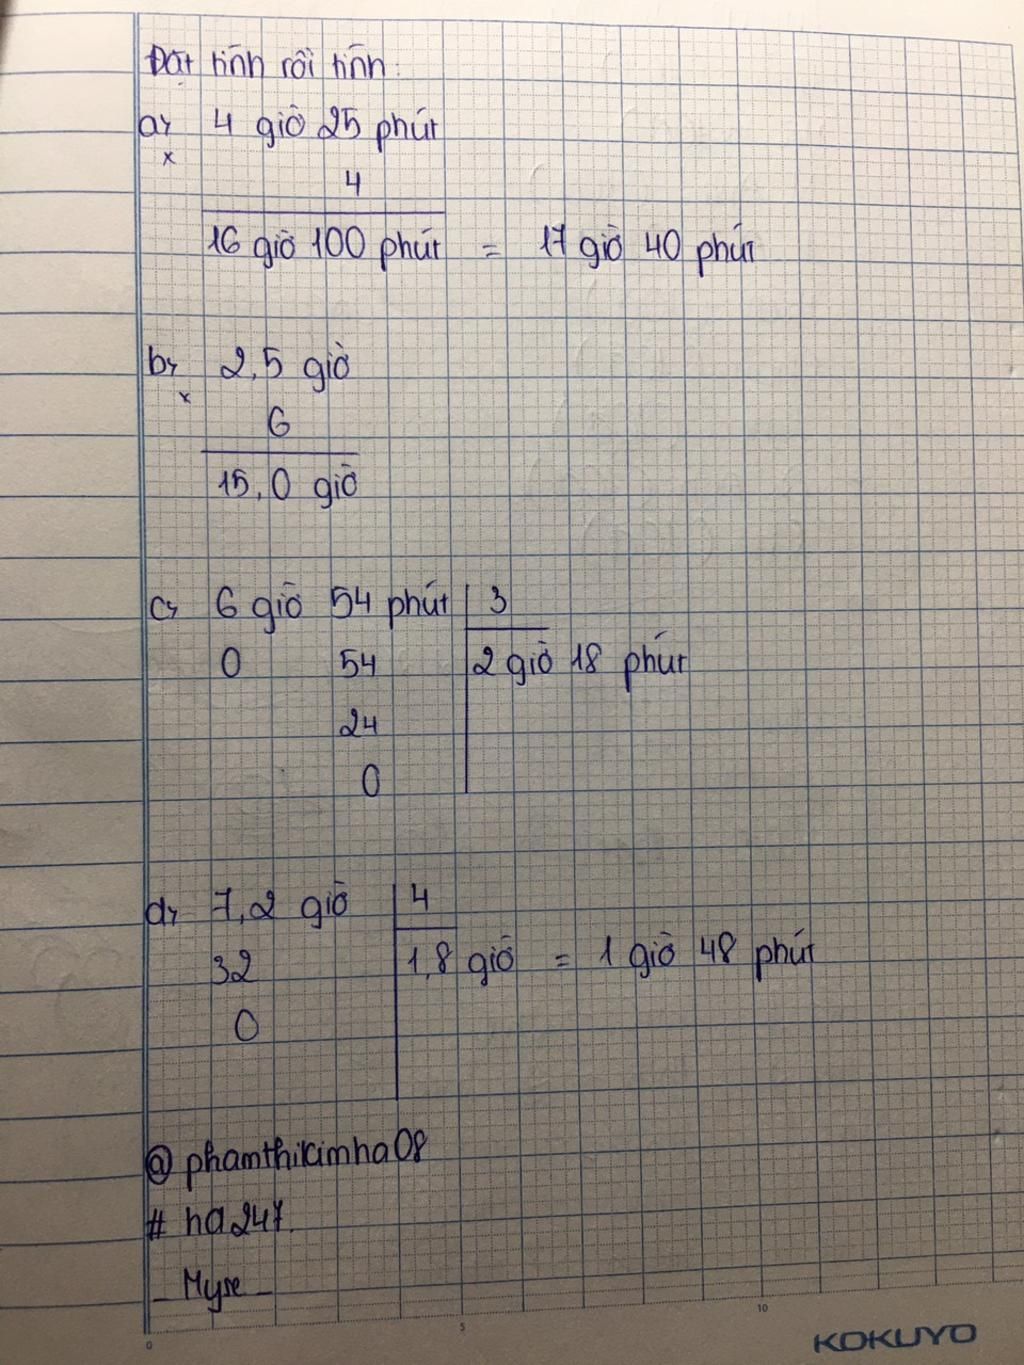 Đặt tính rồi tính:
a, 4 giờ 25 phút
x
4
16 giờ 100 phút = 17 giờ 40 phút
b, 2,5 giờ
x
6
15,0 giờ
c, 6 giờ 54 phút 3
0 54 2 giờ 18 phút
24
0
d, 7,2 giờ 4
32 1,8 giờ = 1 giờ 48 phút
0
@ phamthikimha08
# ha247.
_ Myse _
0 5 10
KOKUYO